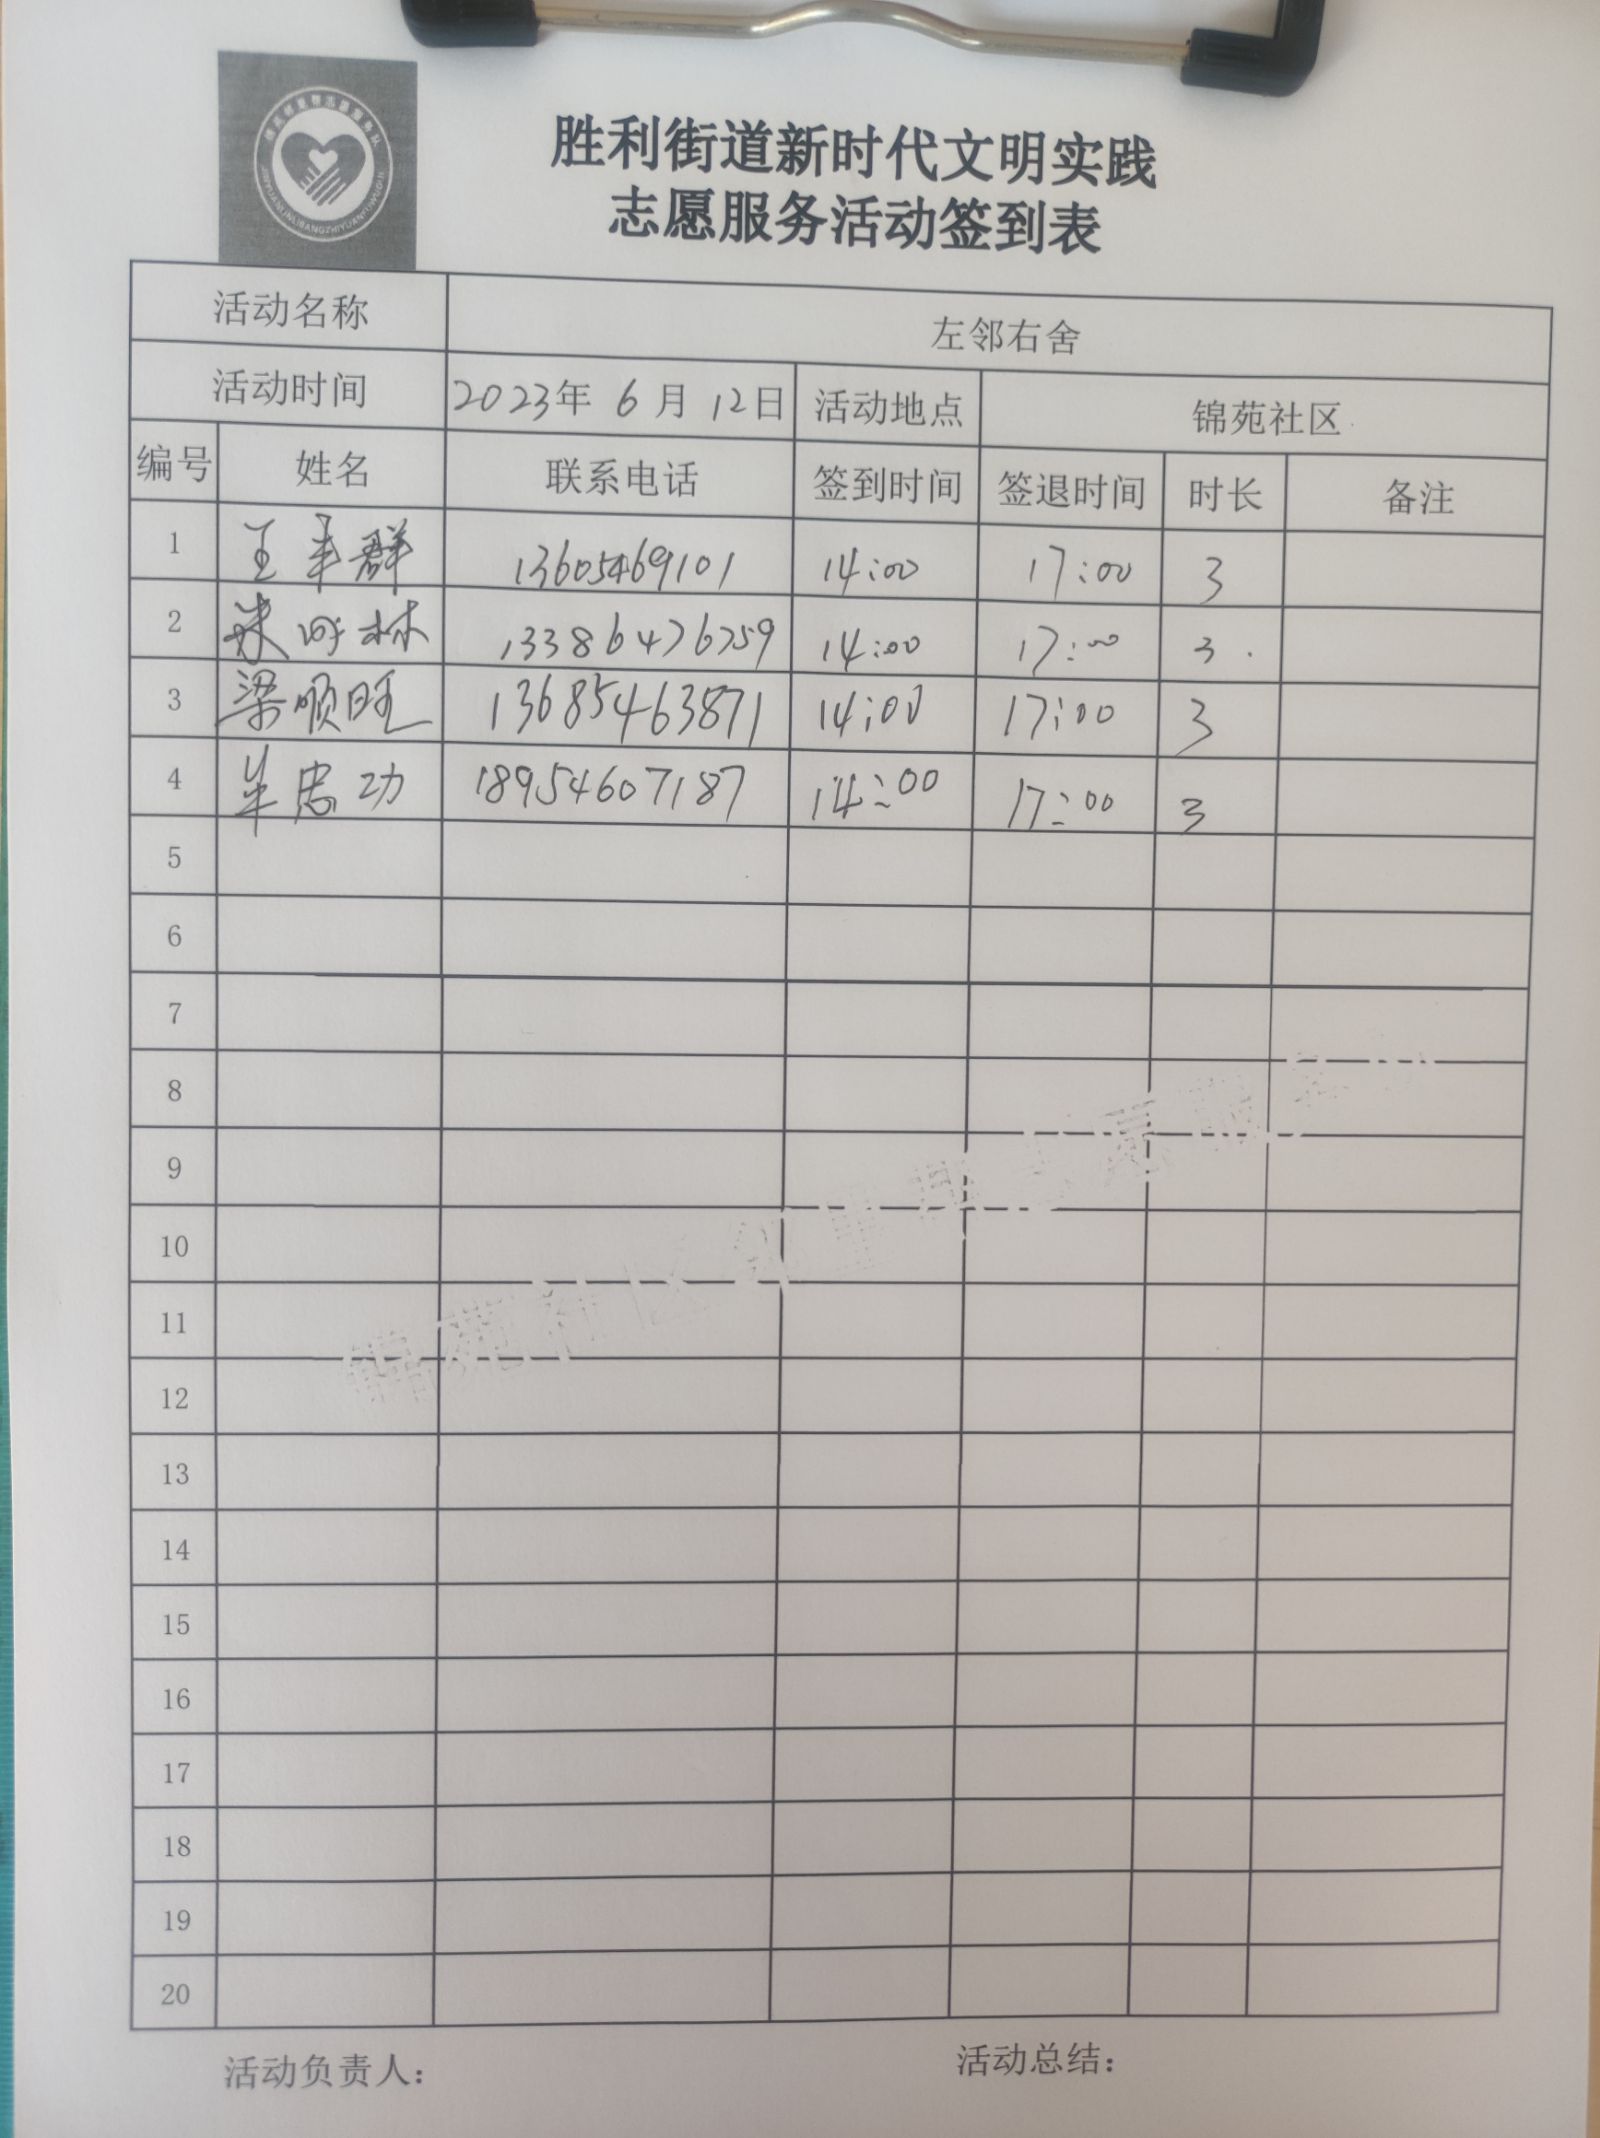 胜利街道新时代文明实践
志愿服务活动签到表
活动名称 左邻右舍
活动时间 2023年 6月 12日 活动地点 锦苑社区
编号 姓名 联系电话 签到时间 签退时间 时长 备注
1 王丰群 13605469101 14:00 17:00 3
2 林 13386476759 14:00 17:00 3
3 梁顺旺 13685463871 14:00 17:00 3
4 忠功 18954607187 14:00 17:00 3
5
6
7
8
9
10
11
12
13
14
15
16
17
18
19
20
锦苑社区邻里帮志愿服务队
活动负责人: 活动总结: